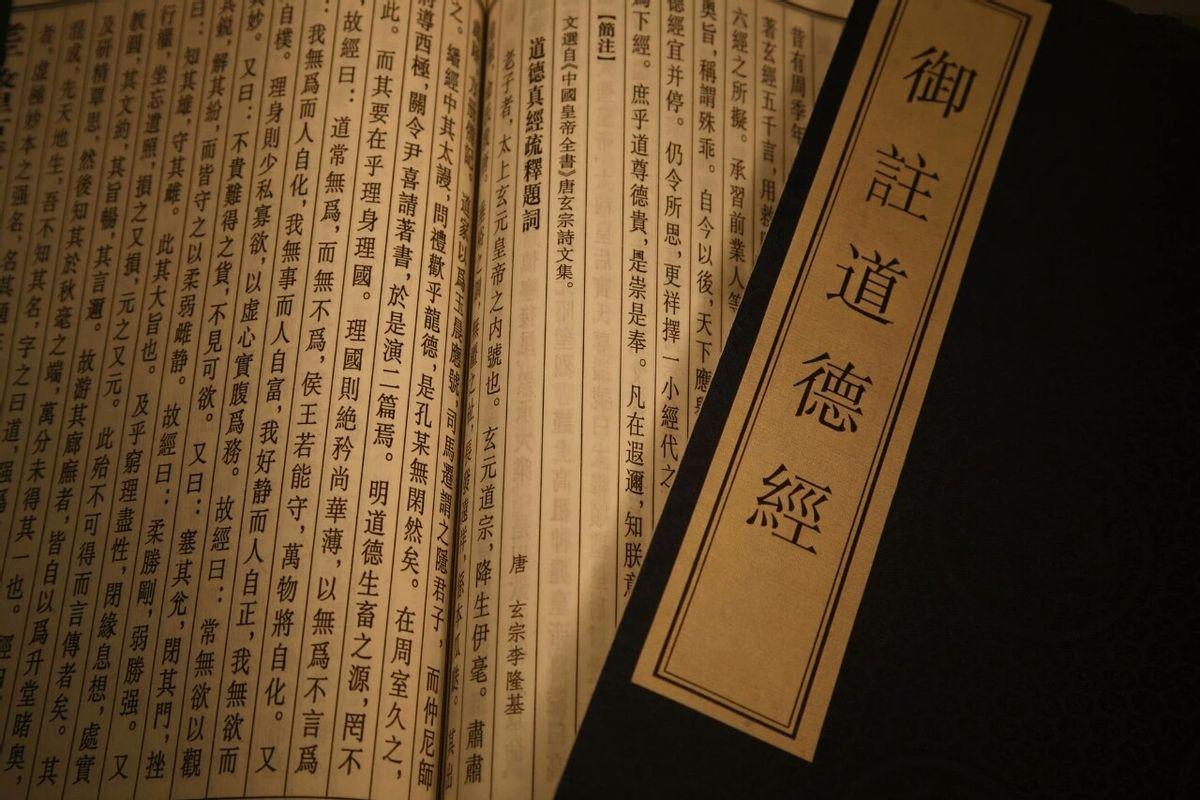 御註道德經
昔有周季年
著玄經五千言，用救
六經之所擬。承習前業人等
奧旨，稱謂殊乖。自今以後，天下應
德經宜并停。仍令所思，更祥擇一小經代之
爲下經。庶乎道尊德貴，是崇是奉。凡在遐邇，知朕意
【簡注】
文選自《中國皇帝全書》唐玄宗詩文集。
道德真經疏釋題詞
唐 玄宗李隆基
老子者，太上玄元皇帝之内號也。玄元道宗，降生伊亳。肅肅
之。繙經中其太謾，問禮歡乎龍德，是孔某無閑然矣。在周室久之，
將導西極，關令尹喜請著書，於是演二篇焉。明道德生畜之源，罔不
此。而其要在乎理身理國。理國則絶矜尚華薄，以無爲不言爲
，故經曰：道常無爲，而無不爲，侯王若能守，萬物將自化。又
我無爲而人自化，我無事而人自富，我好静而人自正，我無欲而
自樸。理身則少私寡欲，以虚心實腹爲務。故經曰：常無欲以觀
其妙。又曰：不貴難得之貨，不見可欲。又曰：塞其兑，閉其門，挫
其鋭，解其紛，而皆守之以柔弱雌静。故經曰：柔勝剛，弱勝强。又
曰：知其雄，守其雌。此其大旨也。及乎窮理盡性，閉緣息想，處實
行權，坐忘遺照，損之又損，元之又元。此殆不可得而言傳者矣。其
教圓，其文約，其旨暢，其言邇。故游其廊廡者，皆自以爲升堂睹奥，
及研精覃思，然後知其於秋毫之端，萬分未得其一也。經曰
混成，先天地生，吾不知其名，字之曰道，强爲
者，虚極妙本之强名，名其